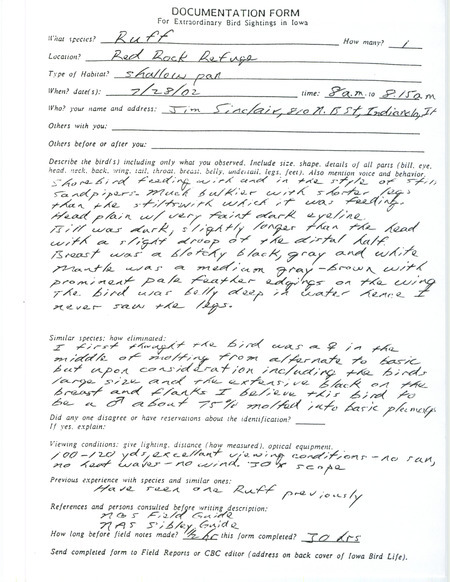 DOCUMENTATION FORM
For Extraordinary Bird Sightings in Iowa
What species? Ruff How many? 1
Location? Red Rock Refuge
Type of Habitat? shallow pan
When? date(s): 7/28/02 time: 8 a.m. to 8:15 a.m
Who? your name and address: Jim Sinclair, 810 N. B St, Indianola, Ia
Others with you:
Others before or after you:
Describe the bird(s) including only what you observed. Include size, shape, details of all parts (bill, eye,
head, neck, back, wing, tail, throat, breast, belly, undertail, legs, feet). Also mention voice and behavior.
Shorebird feeding with and in the style of stilt
sandpipers. Much bulkier with shorter legs
than the stilts with which it was feeding.
Head plain w/ very faint dark eyeline
Bill was dark, slightly longer than the head
with a slight droop at the distal half.
Breast was a blotchy black, gray and white
Mantle was a medium gray-brown with
prominent pale feather edgings on the wing
The bird was belly deep in water hence I
never saw the legs.
Similar species: how eliminated:
I first thought the bird was a ♀ in the
middle of molting from alternate to basic
but upon consideration including the birds
large size and the extensive black on the
breast and flanks I believe this bird to
be a ♂ about 75% molted into basic plumage
Did any one disagree or have reservations about the identification?
If yes, explain:
Viewing conditions: give lighting, distance (how measured), optical equipment.
100-120 yds, excellent viewing conditions - no sun,
no heat waves - no wind. 30x scope
Previous experience with species and similar ones:
Have seen one Ruff previously
References and persons consulted before writing description:
NGS Field Guide
NAS Sibley Guide
How long before field notes made? 1/2 hr this form completed? 30 hrs
Send completed form to Field Reports or CBC editor (address on back cover of Iowa Bird Life).